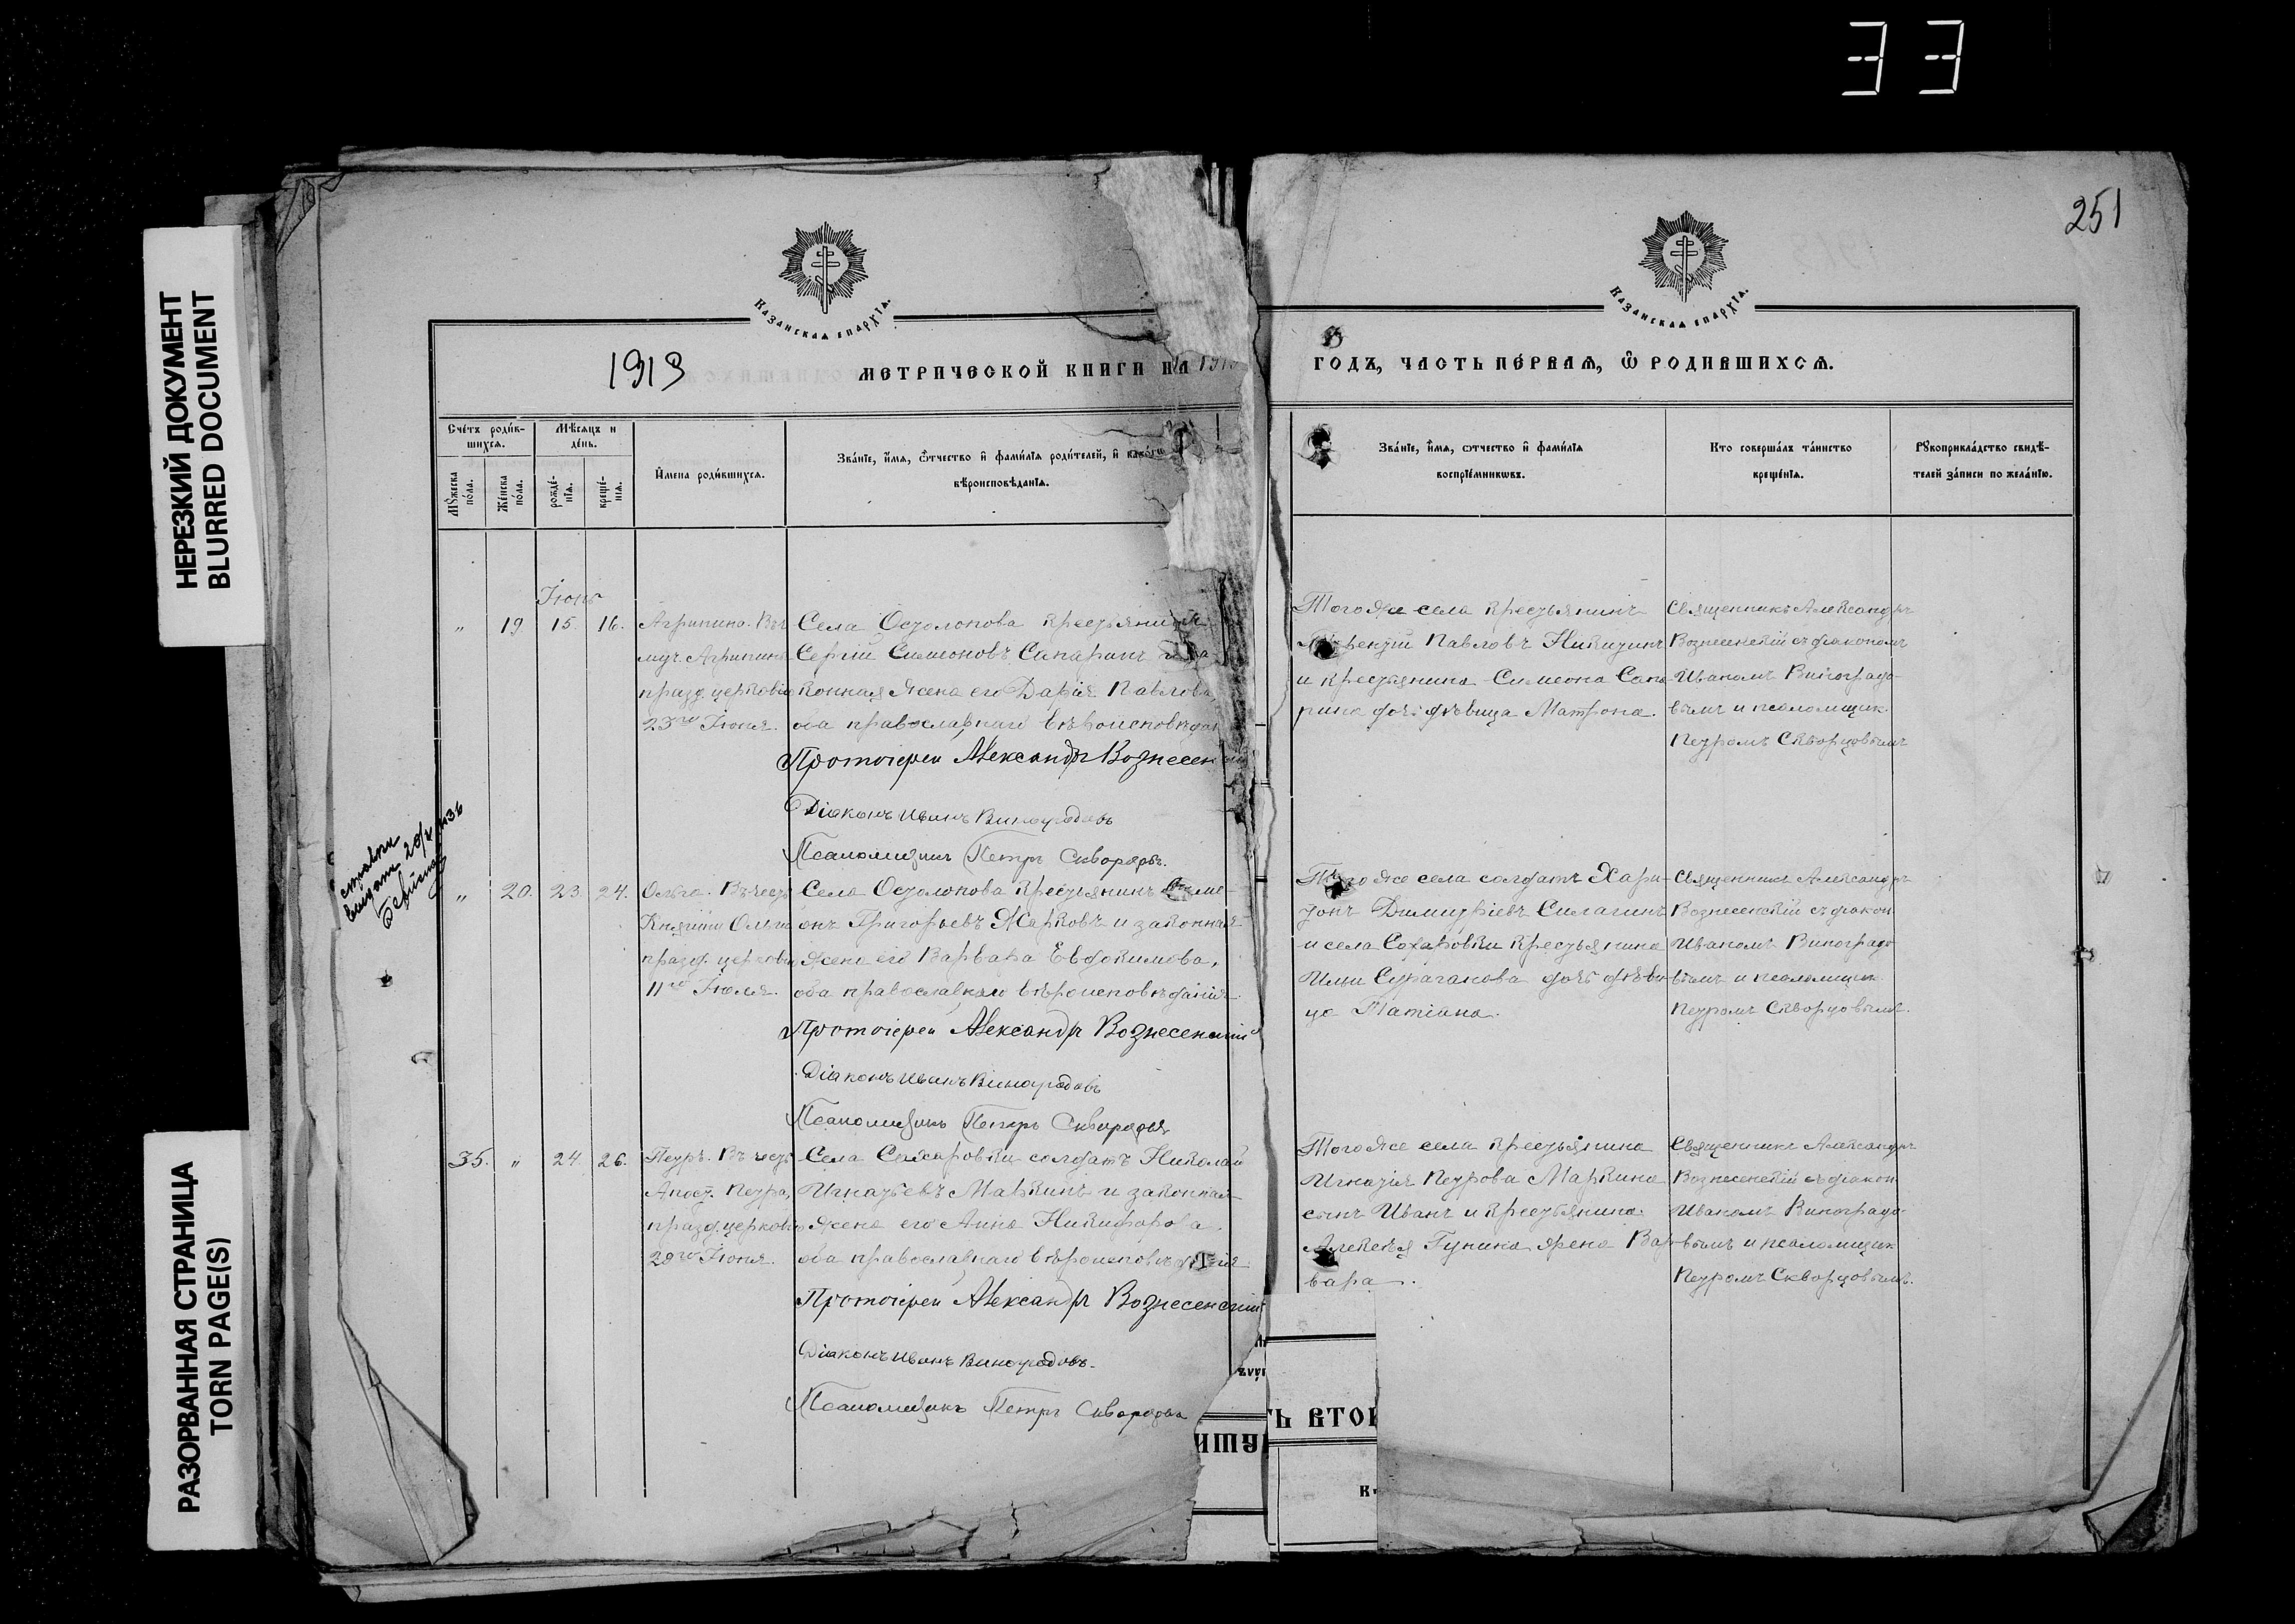 33
НЕРЕЗКИЙ ДОКУМЕНТ
BLURRED DOCUMENT
РАЗОРВАННАЯ СТРАНИЦА
TORN PAGE(S)
251
КАЗАНСКАЯ ЕПАРХІЯ.
КАЗАНСКАЯ ЕПАРХІЯ.
1913
МЕТРИЧЕСКОЙ КНИГИ НА 1913
ГОДЪ, ЧАСТЬ ПЕРВАЯ, Ѡ РОДИВШИХСЯ.
Счетъ родив-
шихся.
Мужеска пола.
Женска пола.
Мѣсяцъ и
день.
рожде-
нія.
креще-
нія.
Имена родившихся.
Званіе, имя, ѿчество и фамилія родителей, и какого
вѣроисповѣданія.
Званіе, имя, ѿчество и фамилія
воспріемниковъ.
Кто совершалъ таинство
крещенія.
Рукоприкладство свидѣ-
телей записи по желанію.
Іюнь
" 19. 15. 16.
Агрипина. Въ
муч. Агрипина
празд. церковію
23го Іюня.
Села Остолопова крестьянинъ
Сергій Симеоновъ Сапаринъ и за
конная жена его Дарія Павлова,
оба православнаго вѣроисповѣдан
Протоіерей Александръ Вознесен
Діаконъ Иванъ Виноградовъ
Псаломщикъ Петръ Скворцовъ.
Того же села крестьянинъ
Павловъ Никитинъ
и крестьянина Симеона Сапа
рина дочь дѣвица Матрона.
Священникъ Александръ
Вознесенскій съ діакономъ
Иваномъ Виноградо-
вымъ и псаломщик.
Петромъ Скворцовымъ
выдана
" 20. 23. 24.
Ольга. Въ честь
Княгини Ольги
празд. церковію
11го Іюля.
Села Остолопова крестьянинъ Симе-
онъ Григорьевъ Жарковъ и законная
жена его Варвара Евдокимова,
оба православнаго вѣроисповѣданія.
Протоіерей Александръ Вознесенскій
Діаконъ Иванъ Виноградовъ
Псаломщикъ Петръ Скворцовъ
Того же села солдатъ Хари-
тонъ Димитріевъ Силагинъ
и села крестьянина
Ильи Сураганова дочь дѣви-
ца Татіана.
Священникъ Александръ
Вознесенскій съ діакон
Иваномъ Виноградо
вымъ и псаломщик
Петромъ Скворцовымъ.
35. " 24. 26.
Петръ. Въ честь
Апост. Петра,
празд. церковію
29го Іюня.
Села солдатъ Николай
Игнатьевъ Маркинъ и законная
жена его Анна Никифорова.
оба православнаго вѣроисповѣданія
Протоіерей Александръ Вознесенскій
Діаконъ Иванъ Виноградовъ.
Псаломщикъ Петръ Скворцовъ
Того же села крестьянина
Игнатія Петрова Маркина
сынъ Иванъ и крестьянина
Алексѣя Гунина жена Вар-
вара.
Священникъ Александръ
Вознесенскій съ діакон
Иваномъ Виноградо-
вымъ и псаломщик
Петромъ Скворцовымъ.
ТЬ ВТОР